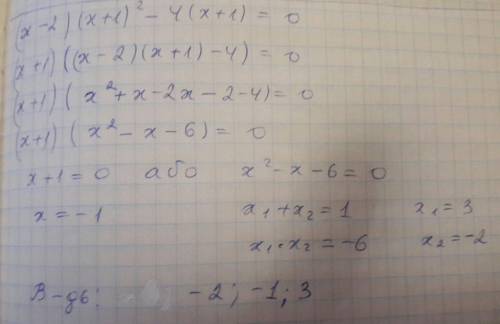 (x-2)(x+1)² - 4(x+1) = 0
(x+1)((x-2)(x+1)-4) = 0
(x+1)(x²+x-2x-2-4) = 0
(x+1)(x²-x-6) = 0
x+1=0 або x²-x-6=0
x=-1 x₁+x₂=1 x₁=3
x₁·x₂=-6 x₂=-2
В-дь: -2; -1; 3